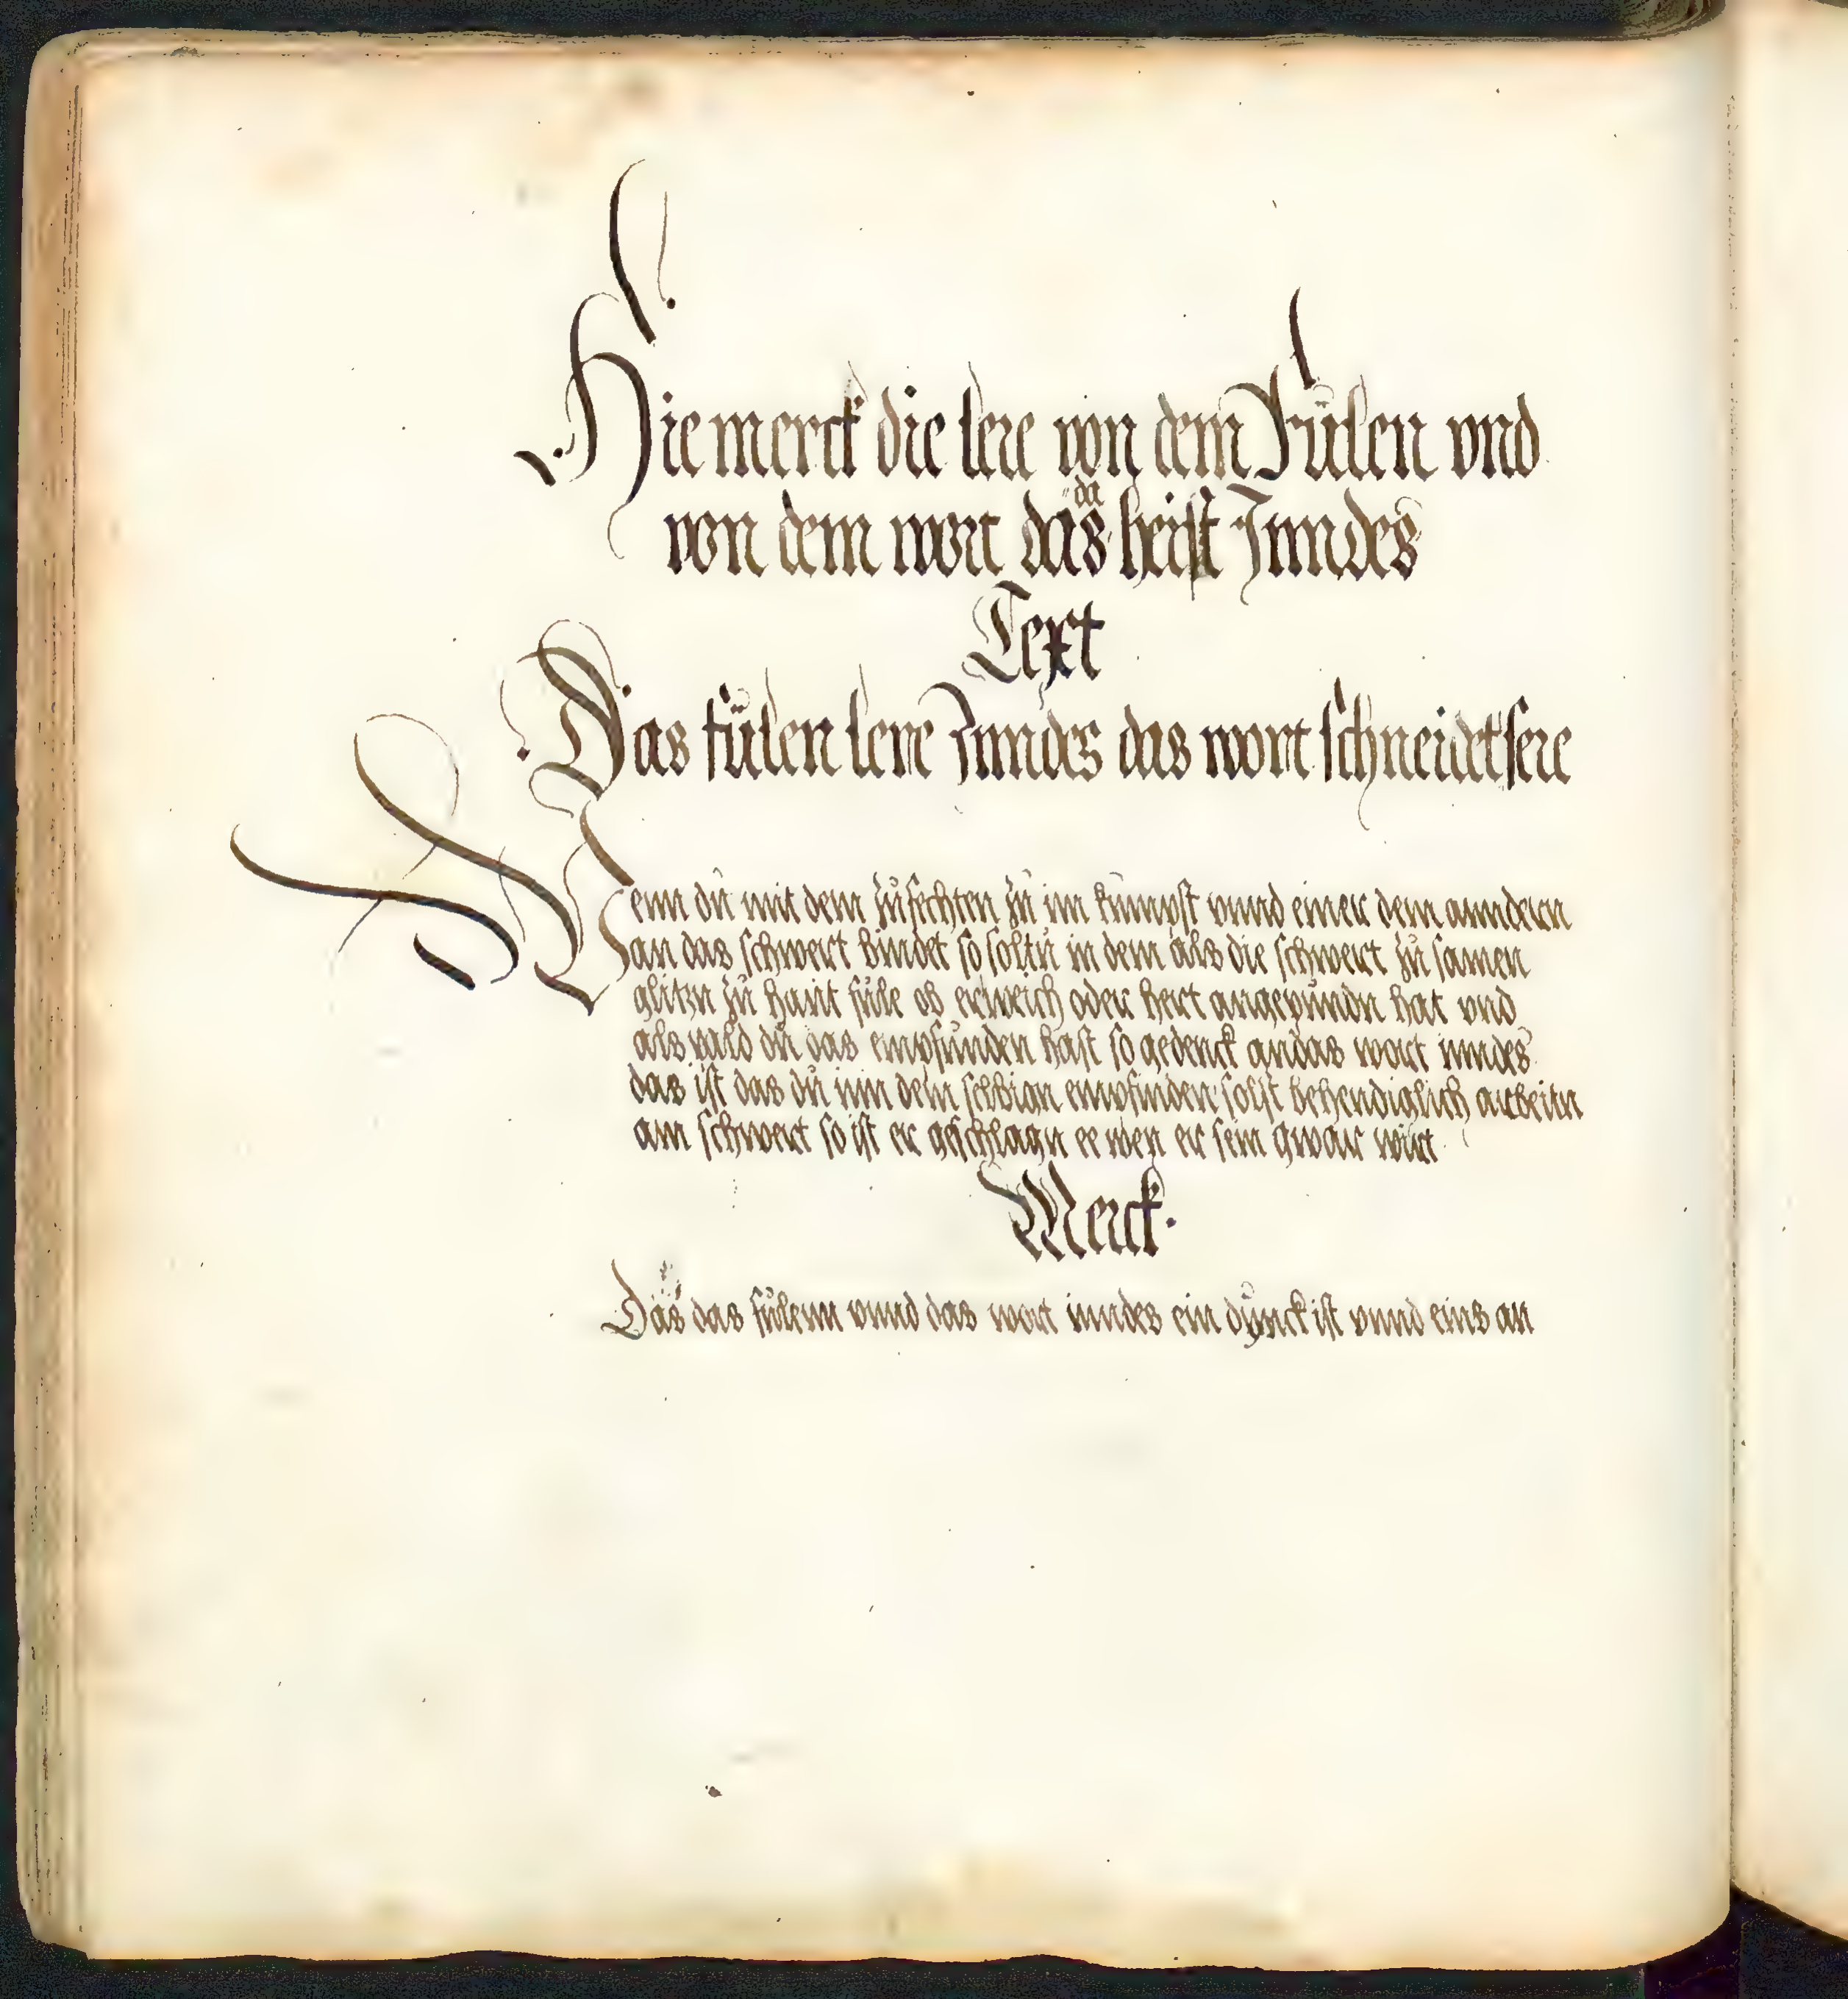 Hie merck die lere von dem Fülen vnd
von dem wort das da heist Inndes
Text
Das fülen lere Inndes das wort schneidet sere
Wenn du mit dem zufechten zu im kumpst vnnd einer dem anndern
an das schwert bindet so soltu in dem als die schwert zu samen
glitzn zu hant füle ob er weich oder hert angepundn hat vnd
als pald du das empfunden hast so gedenck an das wort inndes
das ist das du inn dem selbign empfinden solst behendiglich arbeitn
am schwert so ist er geschlagn ee wen er sein gwar wirt
Merck.
Das das fülenn vnnd das wort inndes ein dunck ist vnnd eins an